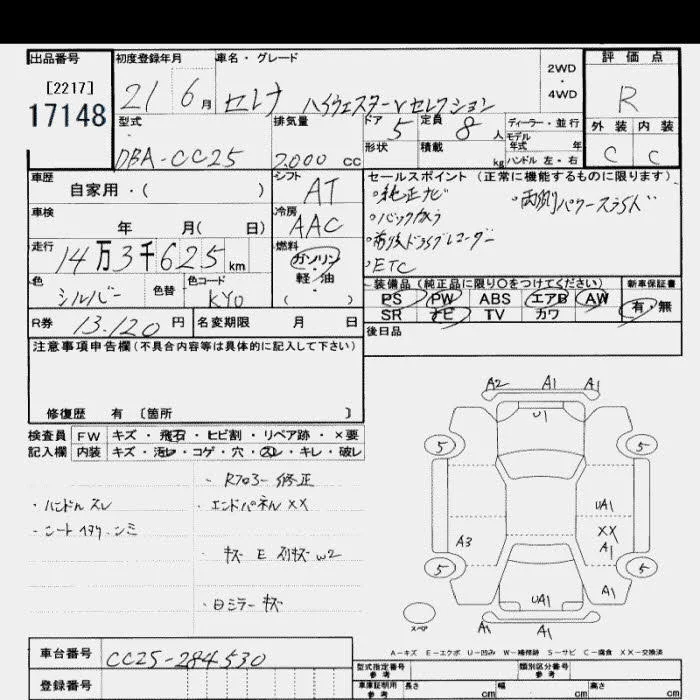 出品番号
[2217]
17148
初度登録年月
21 6月
車名・グレード
セレナ ハイウェスターV セレクション
2WD
・
4WD
評価点
R
外装 内装
C C
型式
DBA-CC25
排気量
2,000 cc
ドア 5 定員 8 人
形状
積載 kg
ディーラー・並行
モデル
年式 年
ハンドル 左・右
車歴
自家用・( )
シフト
AT
車検
年 月( 日)
冷房
AAC
走行
14万3千625km
燃料
ガソリン
軽・油
( )
色
シルバー
色替
色コード
KY0
R券 13.120円
名変期限 月 日
セールスポイント (正常に機能するものに限ります)
°純正ナビ
°両側パワースライド
°バックカメラ
°前後ドライブレコーダー
°ETC
装備品(純正品に限り〇をつけてください)
新車保証書
PS PW ABS エアB AW
SR ナビ TV カワ
有・無
後日品
注意事項申告欄(不具合内容等は具体的に記入して下さい)
修復歴 有〔箇所 〕
検査員
記入欄
FW キズ・飛石・ヒビ割・リペア跡・×要
内装 キズ・汚レ・コゲ・穴・スレ・キレ・破レ
・ハンドルスレ
・エンドパネルXX
・キズ E スリキズ W2
A2 A1 A1
U1
5 5
UA1
XX
A1
A3
5 5
A1
UA1
スペア
A1 A1
A-キズ E-エクボ U-凹み W-補修跡 S-サビ C-腐食 XX-交換済
車台番号
CC25-284530
登録番号
型式指定番号
参考
類別区分番号
参考
車庫証明用
参考
長さ cm
幅 cm
高さ cm